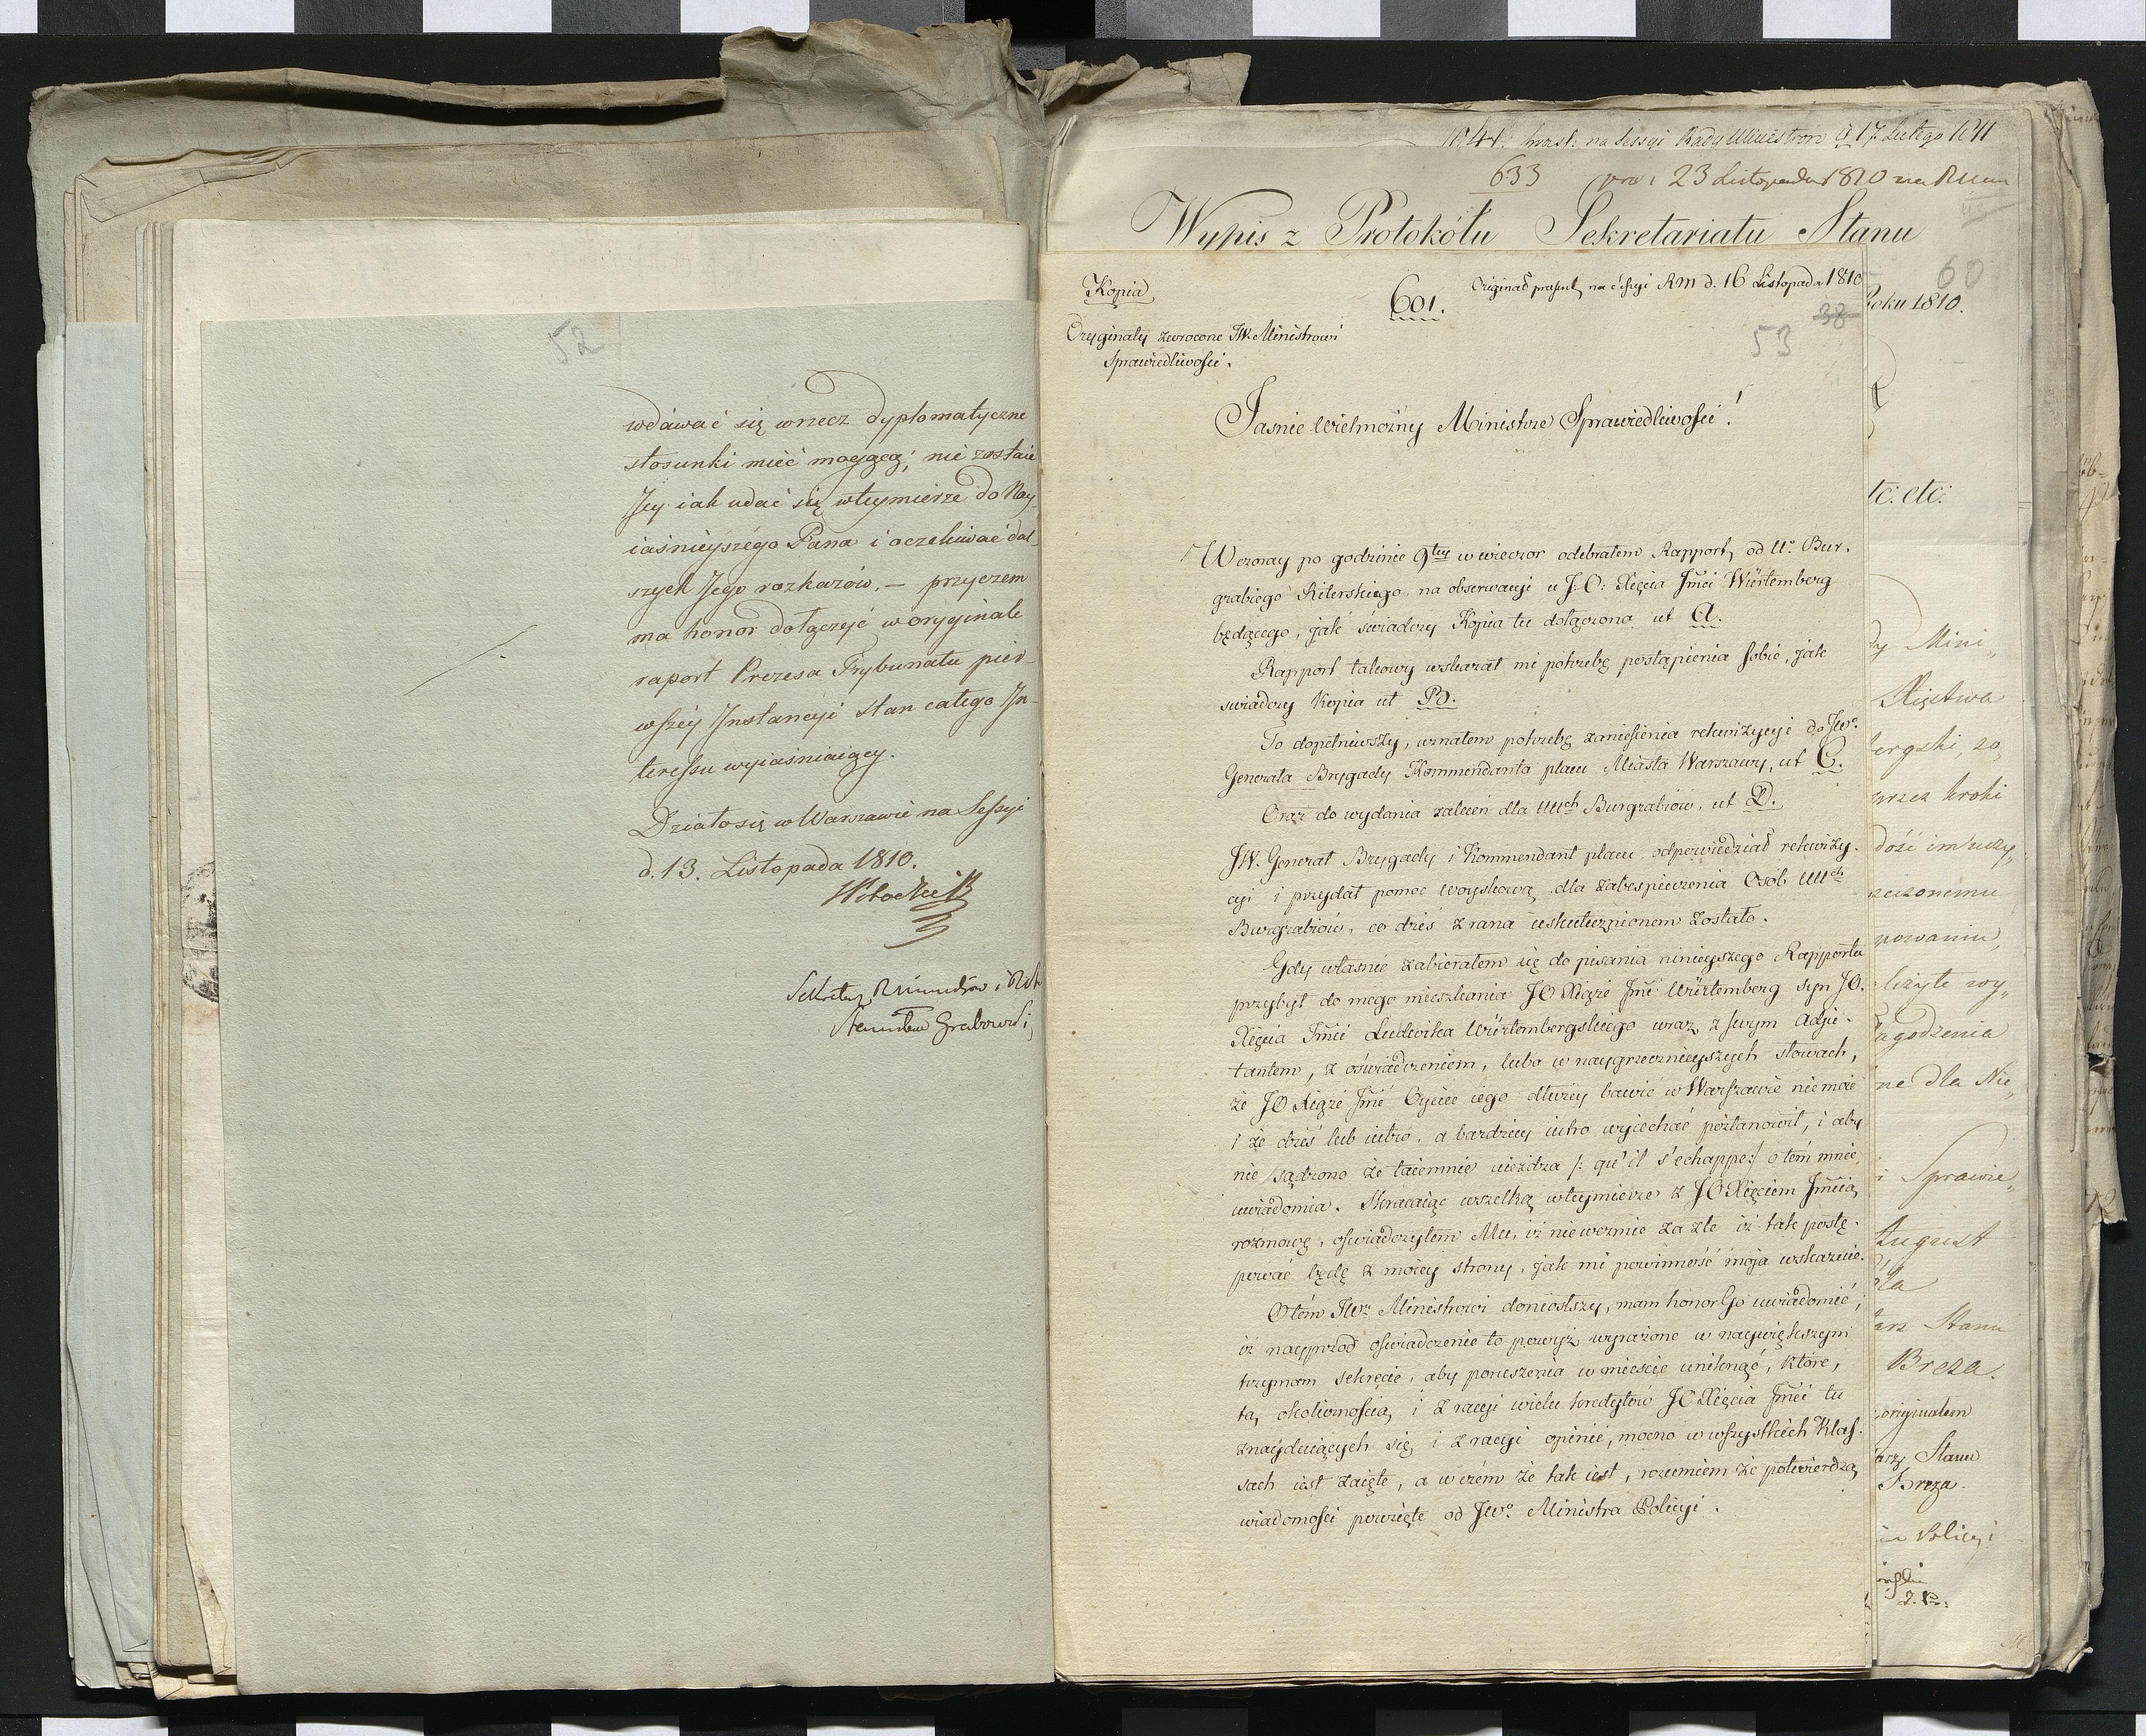 52
wdawać się wrzecz dyplomatyczne
stosunki mieć mogącą; nie zostaie
Jey iak udać się wteymierze do Nay-
iaśnieyszégo Pana i oczekiwać dal-
szych Jego rozkazów. — przyczem
ma honor dołączyć w oryginale
raport Prezesa Trybunału pier-
wszéy Instancyi stan całego In-
teressu wyiaśniaiący.
Działo się w Warszawie na Sessyi
d. 13. Listopada 1810.
Sekretarz
Stanisław Grabowski
na Sessyi Rady Ministrow d 17 Lutego 1811
633 23 Listopada 1810 na
Wypis z Protokółu Sekretariatu Stanu
60
Roku 1810.
Kopia
601. Originał na Sessyi RM d. 16 Listopada 1810
38
53
Oryginały zwrocone JW. Ministrowi
Sprawiedliwości.
Jasnie Wielmożny Ministrze Sprawiedliwości!
Wczoray po godzinie 9tey w wieczor odebrałem Rapport, od Uo. Bur-
grabiego Riterskiego na obserwacyi u J.O: Xięcia Jmći Würtemberg
będącego, jak świadczy Kopia tu dołączona ut A.
Rapport takowy wskazał mi potrzebę postąpienia sobie, jak
swiadczy Kopia ut B.
To dopełniwszy, uznałem potrzebę zaniesienia rekwizycyi do JWo.
Generała Brygady Kommendanta placu Miasta Warszawy, ut C.
Oraz do wydania zaleceń dla UUch Burgrabiów, ut D.
JW. Generał Brygady i Kommendant placu odpowiedział rekwizy-
cyi i przydał pomoc woyskową dla zabespieczenia Osób UUch
Burgrabiów, co dziś z rana uskutecznionem zostało.
Gdy własnie zabierałem się do pisania ninieyszego Rapportu
przybył do mego mieszkania JO Xiąże Jmć Würtemberg syn JO.
Xięcia Jmći Ludwika Würtembergskiego wraz z swym Adju-
tantem, z oświadczeniem, lubo w naygrzecznieyszych słowach,
że JO Xiąże Jmć Oyciec iego dłużey bawić w Warszawie nie może
i że dziś lub iutro, a bardziey iutro wyiechać postanowił, i aby
nie sądzono że taiemnie uieżdza /: qu'il s'echappe :/ o tém mnie
uwiadomia. Skracaiąc wszelką wteymierze z JO Xięciem Jmcią
rozmowę, oświadczyłem Mu, iż nie weźmie za złe iż tak postę-
pować będę z moiey strony, jak mi powinność moja wskazuie.
O tém JWu Ministrowi doniosłszy, mam honor Go uwiadomić,
iż nayprzod oświadczenie to powyż wyrażone w naywiększym
trzymam sekrecie, aby poruszenia w mieście uniknąć, które,
tą okolicznością, i z racyi wielu kredytorów JO Xięcia Jmći tu
znayduiących się, i z racyi opinii, mocno w wszystkich Klas-
sach iest zaięte, a w czém że tak iest, rozumiem że potwierdzą
wiadomości powzięte od JWo. Ministra Policyi.
tc. etc.
Mini„
Xięstwa
bergski, zo„
przez kroki
powaniu,
agodzenia
ne dla Nie„
i Sprawie„
August
Stanu
Breza.
originałem
Stanu
Breza.
Policyi